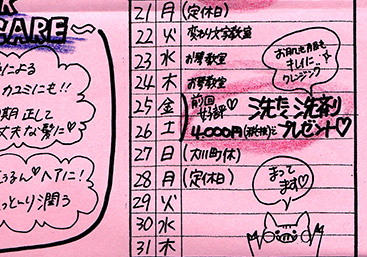 CARE
による
カユミにも!!
期正して
丈夫な髪に♡
うるん♡ヘアに!
しっとり潤う
21 月 (定休日)
22 火 変わり文字教室
23 水 お琴教室
24 木 お琴教室
25 金 前回好評♡ 洗たく洗剤
26 土 4,000円(税抜)で プレゼント♡
27 日 (大川町休)
28 月 (定休日)
29 火
30 水
31 木
お肌も毛穴も
キレイに
クレンジング
まって
ます♡